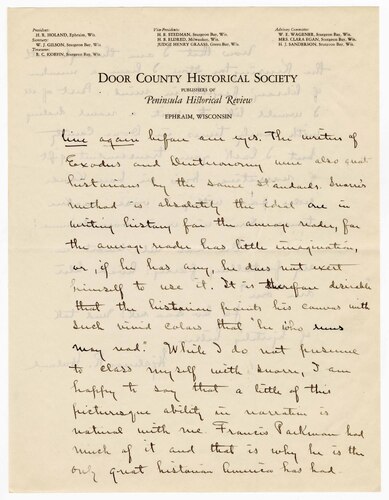 President:
H. R. HOLAND, Ephraim, Wis.
Secretary:
W. J. GILSON, Sturgeon Bay, Wis.
Treasurer:
R. C. KOEPIN, Sturgeon Bay, Wis.
Vice Presidents:
H. R. STEDMAN, Sturgeon Bay, Wis.
H. B. ELDRED, Milwaukee, Wis.
JUDGE HENRY GRAASS, Green Bay, Wis.
Advisory Committee:
W. E. WAGENER, Sturgeon Bay, Wis.
MRS. CLARA EGAN, Sturgeon Bay, Wis.
H. J. SANDERSON, Sturgeon Bay, Wis.
DOOR COUNTY HISTORICAL SOCIETY
PUBLISHERS OF
Peninsula Historical Review
EPHRAIM, WISCONSIN
live again before our eyes. The writers of
Exodus and Deuteronomy were also great
historians by the same standards.
method is absolutely the ideal one in
writing history for the average reader, for
the average reader has little imagination,
or, if he has any, he does not exert
himself to use it. It is therefore desirable
that the historian paints his canvas with
such vivid colors that "he who runs
may read." While I do not presume
to class myself with I am
happy to say that a little of this
picturesque ability in narration is
natural with me. Francis Parkman had
much of it and that is why he is the
only great historian America has had.